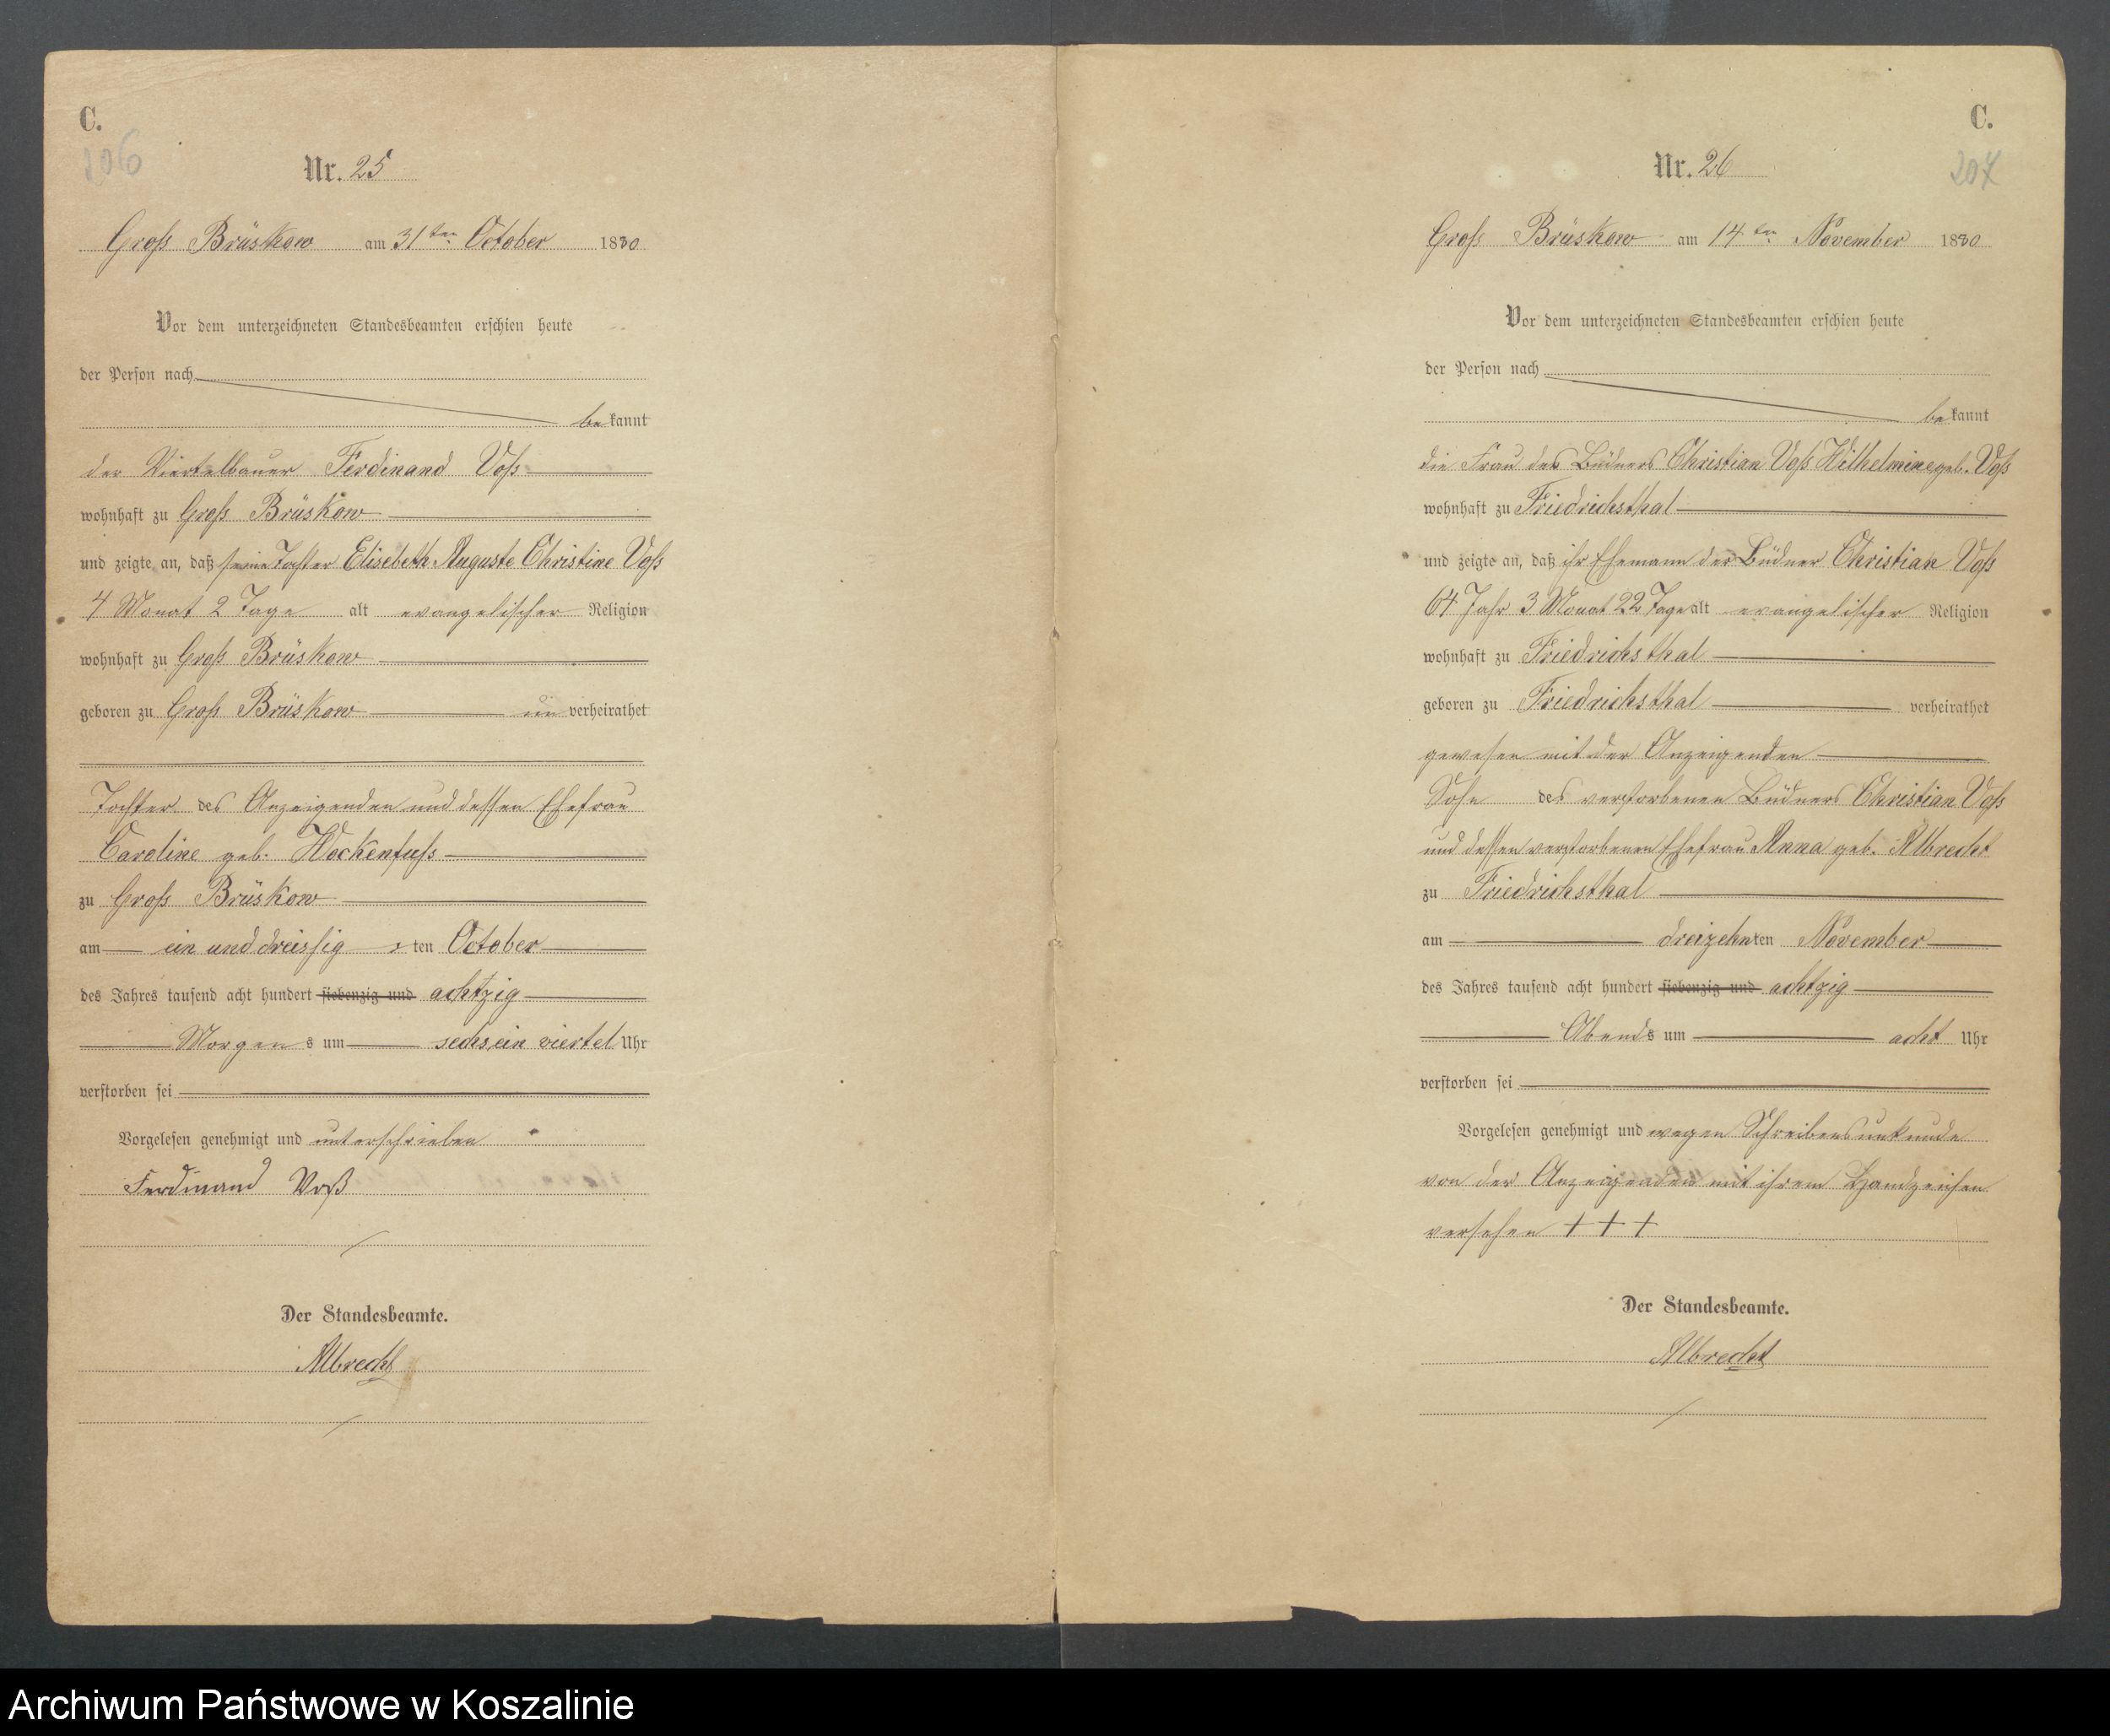 C.
206
Nr. 25
Groß Brüskow am 31ten October 1880
Vor dem unterzeichneten Standesbeamten erschien heute
der Person nach
bekannt
der Viertelbauer Ferdinand Voß
wohnhaft zu Groß Brüskow
und zeigte an, daß seine Tochter Elisebeth Auguste Christine Voß
4 Monat 2 Tage alt evangelischer Religion
wohnhaft zu Groß Brüskow
geboren zu Groß Brüskow unverheirathet
Tochter des Anzeigenden und dessen Ehefrau
Caroline geb. Wockenfuss
zu Groß Brüskow
am ein und dreissigsten October
des Jahres tausend acht hundert siebenzig und achtzig
Morgens um sechs ein viertel Uhr
verstorben sei
Vorgelesen genehmigt und unterschrieben
Ferdinand Voß
Der Standesbeamte.
Albrecht
C.
207
Nr. 26
Groß Brüskow am 14ten November 1880
Vor dem unterzeichneten Standesbeamten erschien heute
der Person nach
bekannt
die Frau des Büdners Christian Voß Wilhelmine geb. Voß
wohnhaft zu Friedrichsthal
und zeigte an, daß ihr Ehemann der Büdner Christian Voß
64 Jahr 3 Monat 22 Tage alt evangelischer Religion
wohnhaft zu Friedrichsthal
geboren zu Friedrichsthal verheirathet
gewesen mit der Anzeigenden
Sohn des verstorbenen Büdners Christian Voß
und dessen verstorbenen Ehefrau Anna geb. Albrecht
zu Friedrichsthal
am dreizehnten November
des Jahres tausend acht hundert siebenzig und achtzig
Abends um acht Uhr
verstorben sei
Vorgelesen genehmigt und wegen Schreibensunkunde
von der Anzeigenden mit ihrem Handzeichen
versehen + + +
Der Standesbeamte.
Albrecht
Archiwum Państwowe w Koszalinie